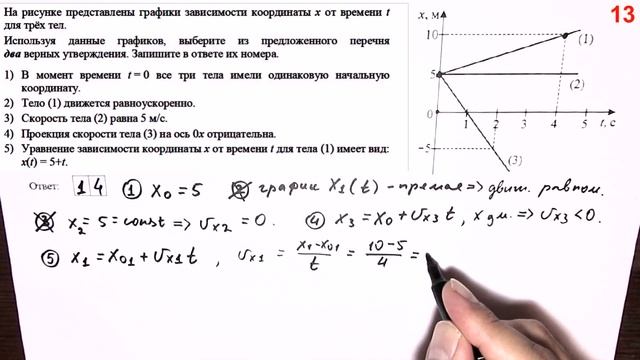 13
На рисунке представлены графики зависимости координаты x от времени t
для трёх тел.
Используя данные графиков, выберите из предложенного перечня
два верных утверждения. Запишите в ответе их номера.
1) В момент времени t = 0 все три тела имели одинаковую начальную
координату.
2) Тело (1) движется равноускоренно.
3) Скорость тела (2) равна 5 м/с.
4) Проекция скорости тела (3) на ось 0x отрицательна.
5) Уравнение зависимости координаты x от времени t для тела (1) имеет вид:
x(t) = 5+t.
x, м
10
(1)
5
(2)
0
1
2
3
4
5
t, с
−5
(3)
Ответ: 1 4
① x₀ = 5
② график x₁(t) - прямая => движ. равном.
③ x₂ = 5 = const => υx₂ = 0.
④ x₃ = x₀ + υx₃ t, x ум. => υx₃ < 0.
⑤ x₁ = x₀₁ + υx₁ t , υx₁ = (x₁-x₀₁)/t = (10-5)/4 =